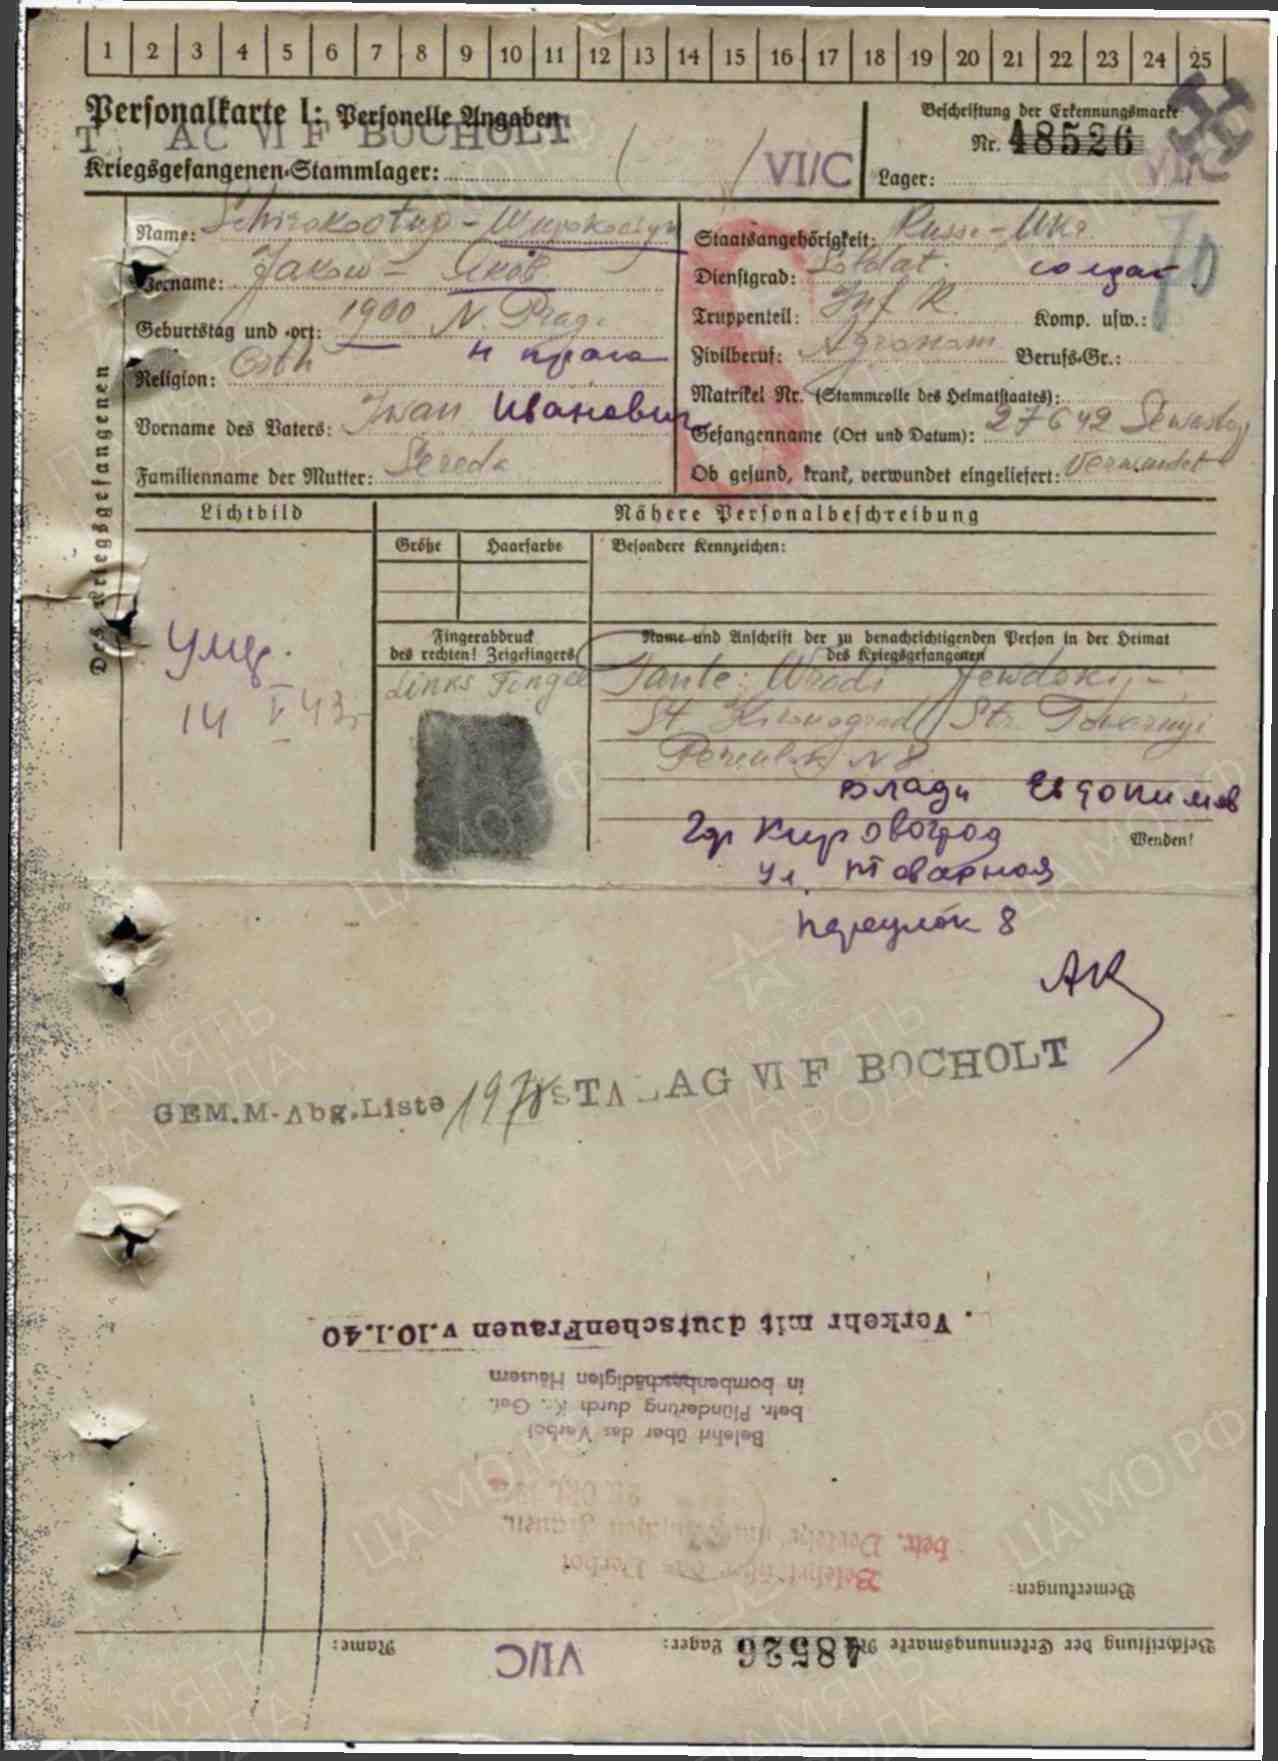 1 2 3 4 5 6 7 8 9 10 11 12 13 14 15 16 17 18 19 20 21 22 23 24 25
Personalkarte I: Personelle Angaben
AG VI F BOCHOLT
Kriegsgefangenen-Stammlager: VI/C
Beschriftung der Erkennungsmarke
Nr. 48526
Lager: VI/C
Des Kriegsgefangenen
Name:
Vorname: Jakow – Яков
Geburtstag und -ort: 1900 N. Prag.
Н прага
Religion: Orth
Vorname des Vaters: Iwan Иванович
Familienname der Mutter: Sereda
Staatsangehörigkeit: Russe – Ukr.
70
Dienstgrad: Soldat. солдат
Truppenteil: Inf. R. Komp. usw.:
Zivilberuf: Agronom Berufs-Gr.:
Matrikel Nr. (Stammrolle des Heimatstaates):
Gefangenname (Ort und Datum): 27 6 42 Sewastop
Ob gesund, krank, verwundet eingeliefert: Verwundet
Lichtbild
Nähere Personalbeschreibung
Größe Haarfarbe Besondere Kennzeichen:
Fingerabdruck
des rechten! Zeigefingers
Links Finger
Name und Anschrift der zu benachrichtigenden Person in der Heimat
des Kriegsgefangenen
Tante:
St. Kirowograd Str. Towarnyi
N 8
14 V 43 г
Влади
гор Кировоград
Wenden!
ул. Товарная
переулок 8
АК
GEM.M-Abg.Liste STALAG VI F BOCHOLT
. Verkehr mit deutschenFrauen v.10.1.40
in bombenbeschädigten Häusern
betr. Plünderung durch Kr. Gef.
Belehrt über das Verbot
betr. Verkehr mit deutschen Frauen.
Belehrt über das Verbot
Bemerkungen:
Beschriftung der Erkennungsmarke Nr. 48526 Lager: VI/C Name:
ЦАМО.РФ
ПАМЯТЬ
НАРОДА